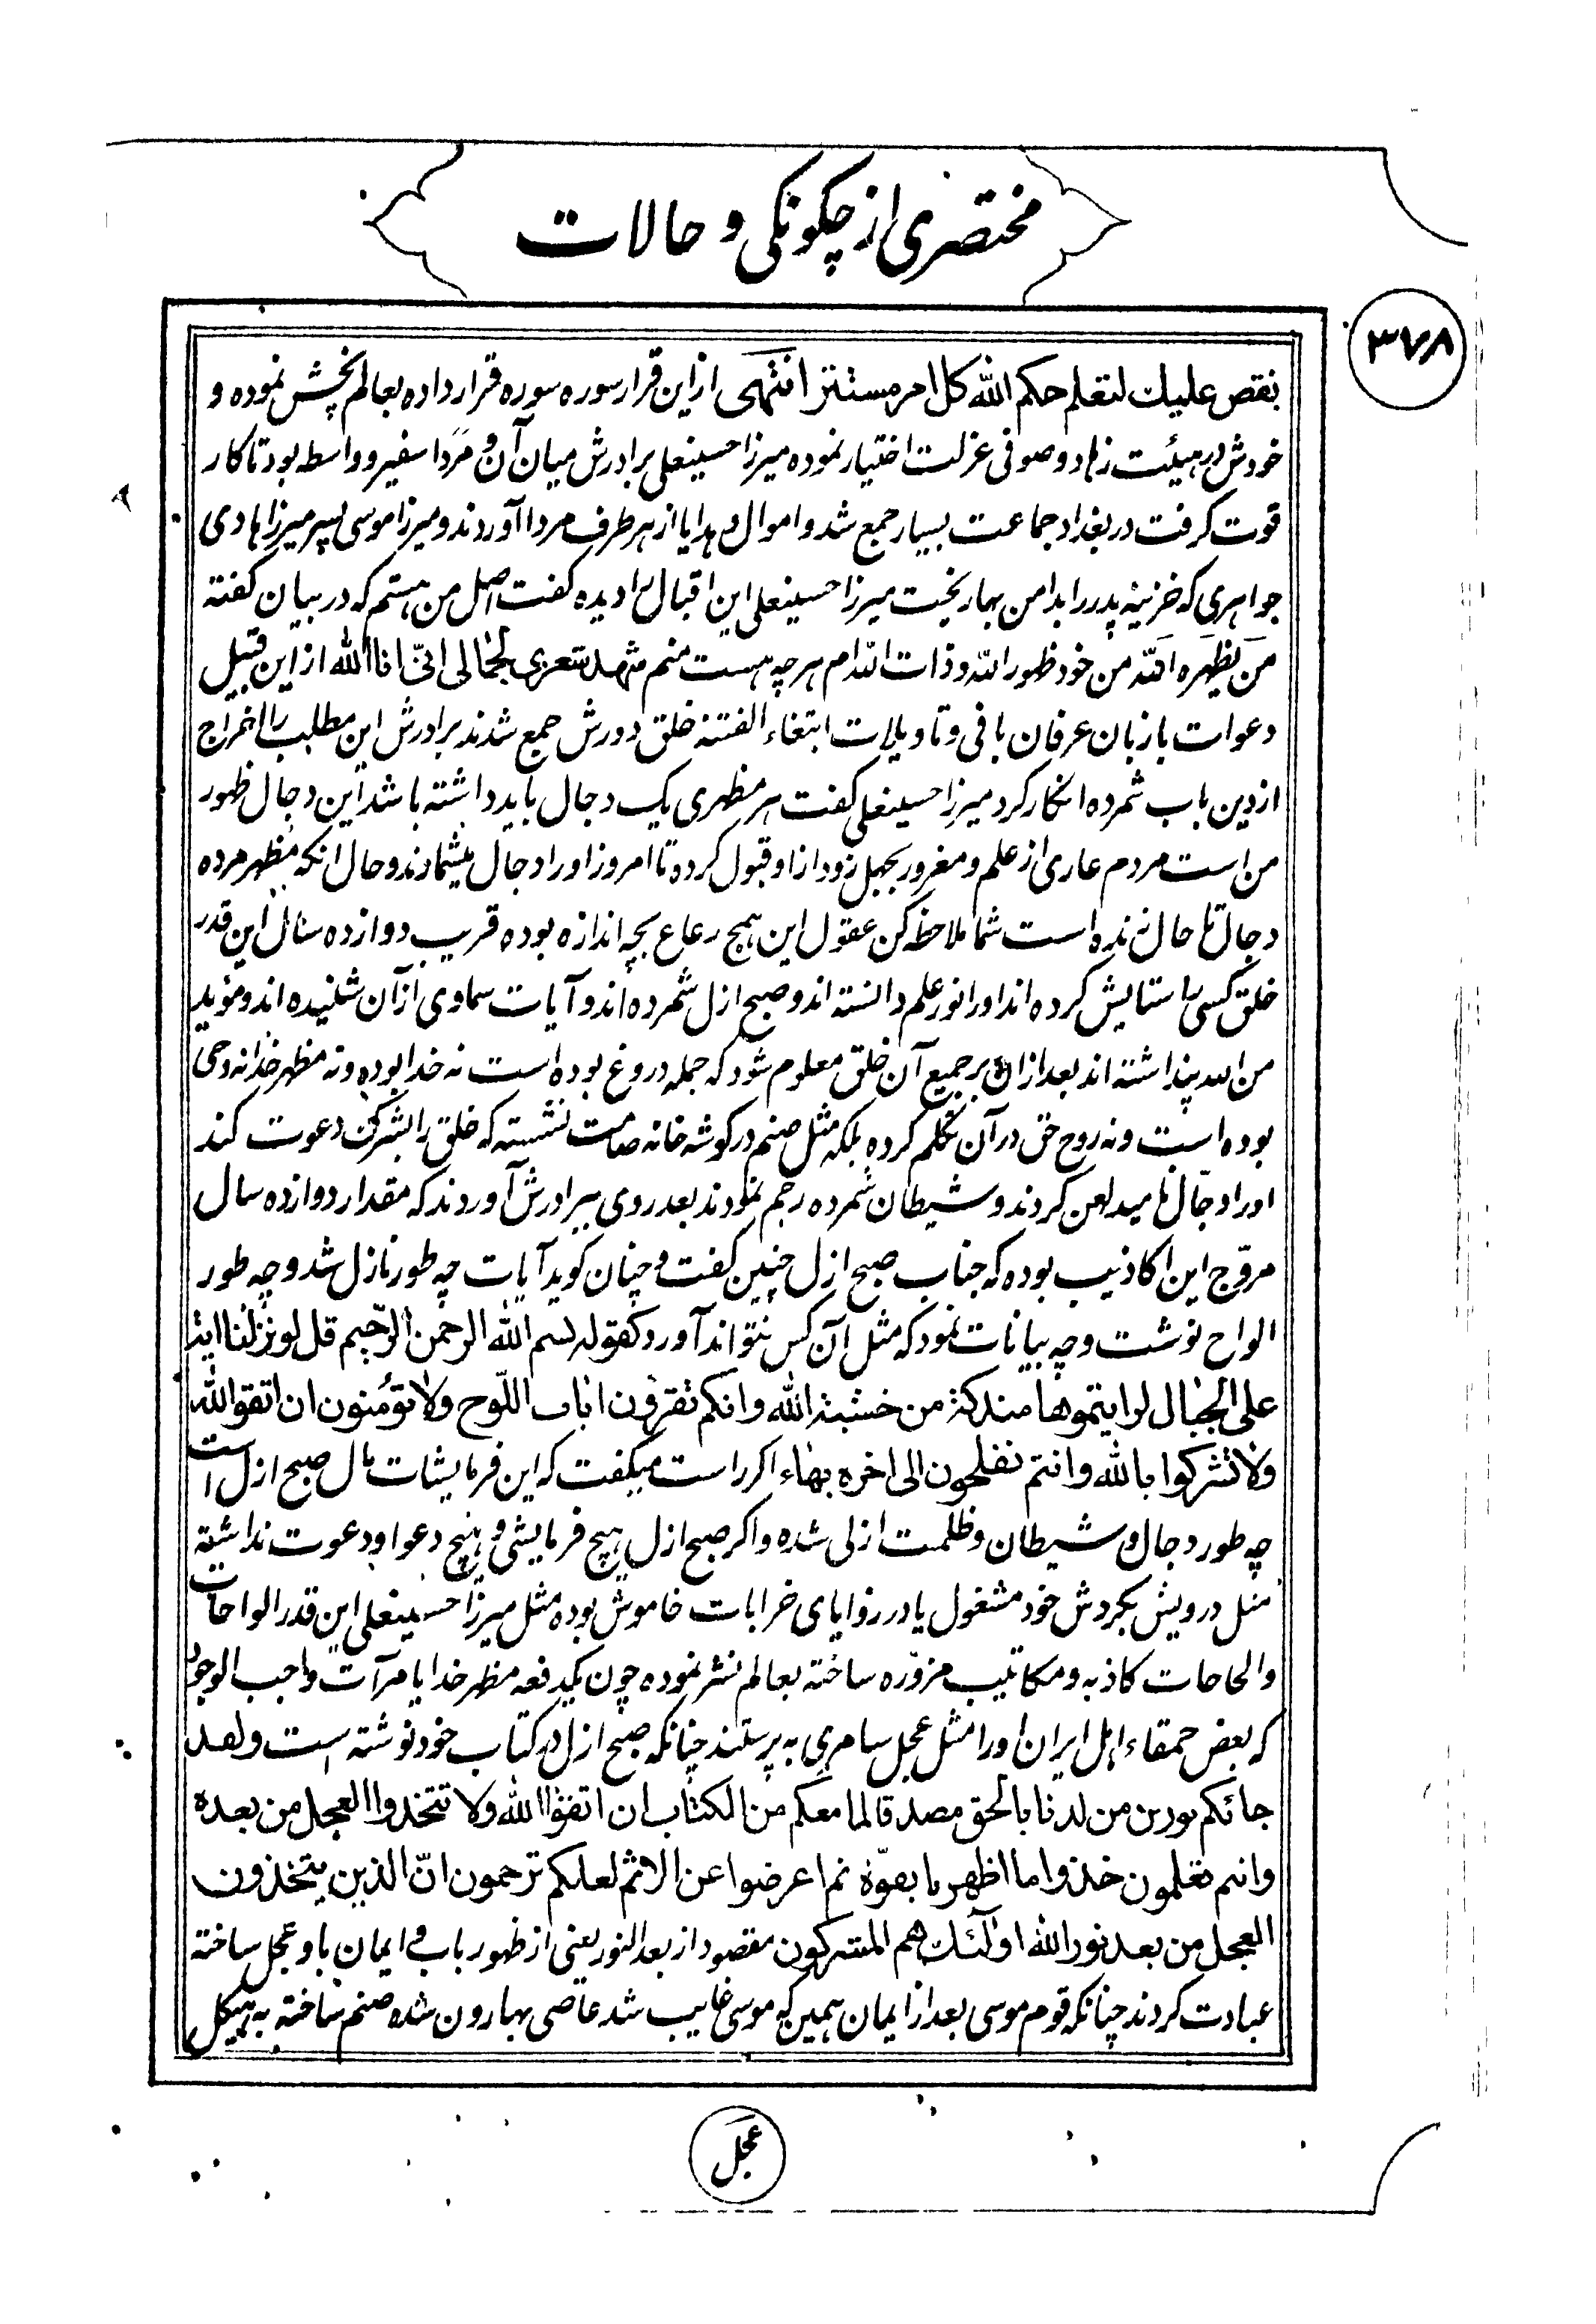 مختصری از چکونکی و حالات
۳۷۸
نقص علیك لتعلم حکم الله کل امر مستتر انتهی از این قرار سوره سوره قرار داده بعالم پخش نموده و
خودش در هیئت زهاد و صوفی عزلت اختیار نموده میرزا حسینعلی برادرش میان آن و مردم سفیر و واسطه بود تا کار
قوت کرفت در بغداد جماعت بسیار جمع شد و اموال و هدایا از هر طرف مردا آوردند و میرزا موسی پسر میرزا هادی
جواهری که خزینه پدر را بدامن بهار یخت میرزا حسینعلی این اقبال را دیده کفت اصل من هستم که در بیان کفته
من یظهره الله من خود ظهور الله و ذات الله ام هر چه هست منم بجمالی انّی انا الله از این قبیل
دعوات با زبان عرفان بافی و تاویلات ابتغاء الفتنه خلق دورش جمع شدند برادرش این مطلب را اخراج
از دین باب شمرده انکار کرد میرزا حسینعلی کفت هر مظهری یک دجال باید داشته باشد این دجال ظهور
من است مردم عاری از علم و مغرور بجهل زود از او قبول کرده تا امروز او را دجال میشمارند و حال انکه مظهر مرده
دجال تا حال زنده است شما ملاحظه کن عقول این همج رعاع بچه اندازه بوده قریب دوازده سال این قدر
خلق کسی را ستایش کرده اند او را نور علم دانسته اند و صبح ازل شمرده اند و آیات سماوی از آن شنیده اند و مؤید
من الله پنداشته اند بعد از ان بر جمیع آن خلق معلوم شود که جمله دروغ بوده است نه خدا بوده و نه مظهر خدا نه وحی
بوده است و نه روح حق در آن تکلم کرده بلکه مثل صنم در کوشه خانه صامت نشسته که خلق را بشرک دعوت کند
او را دجّال نامید لعن کردند و شیطان شمرده رجم نمودند بعد روی ببرادرش آوردند که مقدار دوازده سال
مروّج این اکاذیب بوده که جناب صبح ازل چنین کفت و چنان کوید آیات چه طور نازل شد و چه طور
الواح نوشت و چه بیانات نمود که مثل آن کس نتواند آورد کقوله بسم الله الرحمن الرّحیم قل لو نزلنا
علی الجبال لرایتموها مندکة من خشیة الله و انکم تقرؤن ایات اللّوح و لا تؤمنون ان اتقوا الله
ولا تشرکوا بالله و انتم تفلحون الی اخره بهاء اکر راست میکفت که این فرمایشات مال صبح ازل است
چه طور دجال و شیطان و ظلمت ازلی شده و اکر صبح ازل هیچ فرمایشی و هیچ دعوا و دعوت نداشته
مثل درویش بکردش خود مشغول یا در زوایای خرابات خاموش بوده مثل میرزا حسینعلی این قدر الواحات
والحاحات کاذبه و مکاتیب مزوّره ساخته بعالم نشر نموده چون یکدفعه مظهر خدا یا مرآت واجب الوجود
که بعض حمقاء اهل ایران او را مثل عجل سامری به پرستند چنانکه صبح ازل در کتاب خود نوشته است ولقد
جائکم نورین من لدنا بالحق مصدقا لما معکم من الکتاب ان اتقوا الله ولا تتخذوا العجل من بعده
وانتم تعلمون خذوا ما اظهرنا بقوّة ثم اعرضوا عن الاثم لعلکم ترحمون انّ الذین یتخذون
العجل من بعد نور الله اولٰئك هم المشرکون مقصود از بعد النور یعنی از ظهور باب و ایمان باو عجل ساخته
عبادت کردند چنانکه قوم موسی بعد از ایمان همین که موسی غایب شد عاصی بهارون شده صنم ساخته به هیکل
عجل